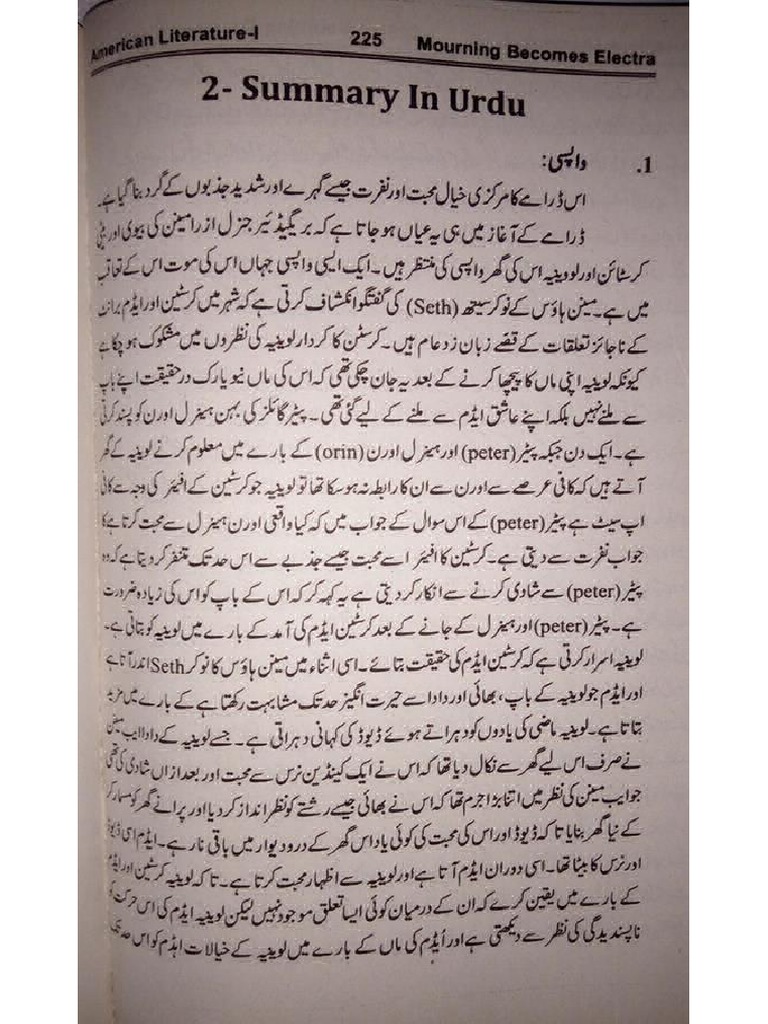 American Literature-I 225 Mourning Becomes Electra
2- Summary In Urdu
1. واپسی:
اس ڈرامے کا مرکزی خیال محبت اور نفرت جیسے گہرے اور شدید جذبوں کے گرد بنا گیا ہے۔
ڈرامے کے آغاز میں ہی یہ عیاں ہو جاتا ہے کہ بریگیڈئیر جنرل ازرا مینن کی بیوی اور بیٹی
کرسٹائن اور لووینیہ اس کی گھر واپسی کی منتظر ہیں۔ ایک ایسی واپسی جہاں اس کی موت اس کے تعاقب
میں ہے۔ مینن ہاؤس کے نوکر سیتھ (Seth) کی گفتگو انکشاف کرتی ہے کہ شہر میں کرسٹین اور ایڈم برانٹ
کے ناجائز تعلقات کے قصے زبان زد عام ہیں۔ کرسٹن کا کردار لوینیہ کی نظروں میں مشکوک ہو چکا ہے
کیونکہ لوینیہ اپنی ماں کا پیچھا کرنے کے بعد یہ جان چکی تھی کہ اس کی ماں نیو یارک درحقیقت اپنے باپ
سے ملنے نہیں بلکہ اپنے عاشق ایڈم سے ملنے کے لیے گئی تھی۔ پیٹر گائلز کی بہن ہینزل اورن کو پسند کرتی
ہے۔ ایک دن جبکہ پیٹر (peter) اور ہینزل اورن (orin) کے بارے میں معلوم کرنے لوینیہ کے گھر
آتے ہیں کہ کافی عرصے سے اورن سے ان کا رابطہ نہ ہو سکا تھا تو لوینیہ جو کرسٹین کے افیئر کی وجہ سے کافی
اپ سیٹ ہے پیٹر (peter) کے اس سوال کے جواب میں کہ کیا واقعی اورن ہینزل سے محبت کرتا ہے کا
جواب نفرت سے دیتی ہے۔ کرسٹین کا افیئر اسے محبت جیسے جذبے سے اس حد تک متنفر کر دیتا ہے کہ وہ
پیٹر (peter) سے شادی کرنے سے انکار کر دیتی ہے یہ کہہ کر کہ اس کے باپ کو اس کی زیادہ ضرورت
ہے۔ پیٹر (peter) اور ہینزل کے جانے کے بعد کرسٹین ایڈم کی آمد کے بارے میں لوینیہ کو بتاتی ہے۔
لوینیہ اسرار کرتی ہے کہ کرسٹین ایڈم کی حقیقت بتائے۔ اسی اثناء میں مینن ہاؤس کا نوکر Seth اندر آتا ہے
اور ایڈم جو لوینیہ کے باپ، بھائی اور دادا سے حیرت انگیز حد تک مشابہت رکھتا ہے کے بارے میں مزید
بتاتا ہے۔ لوینیہ ماضی کی یادوں کو دہراتے ہوئے ڈیوڈ کی کہانی دہراتی ہے۔ جسے لوینیہ کے دادا ایب مینن
نے صرف اس لیے گھر سے نکال دیا تھا کہ اس نے ایک کینڈین نرس سے محبت اور بعد ازاں شادی کی تھی
جو ایب مینن کی نظر میں اتنا بڑا جرم تھا کہ اس نے بھائی جیسے رشتے کو نظر انداز کر دیا اور پرانے گھر کو مسمار کر
کے نیا گھر بنایا تا کہ ڈیوڈ اور اس کی محبت کی کوئی یاد اس گھر کے درودیوار میں باقی نہ رہے۔ ایڈم اسی ڈیوڈ
اور نرس کا بیٹا تھا۔ اسی دوران ایڈم آتا ہے اور لوینیہ سے اظہار محبت کرتا ہے۔ تا کہ لوینیہ کرسٹین اور ایڈم
کے بارے میں یقین کرے کہ ان کے درمیان کوئی ایسا تعلق موجود نہیں لیکن لوینیہ ایڈم کی اس حرکت کو
ناپسندیدگی کی نظر سے دیکھتی ہے اور ایڈم کی ماں کے بارے میں لوینیہ کے خیالات ایڈم کو اس حد تک